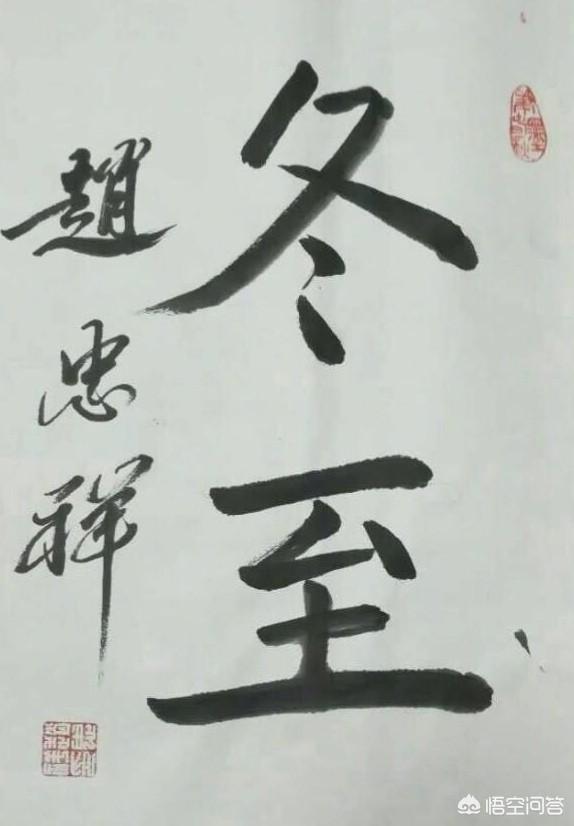 冬至
趙忠祥
悟空问答